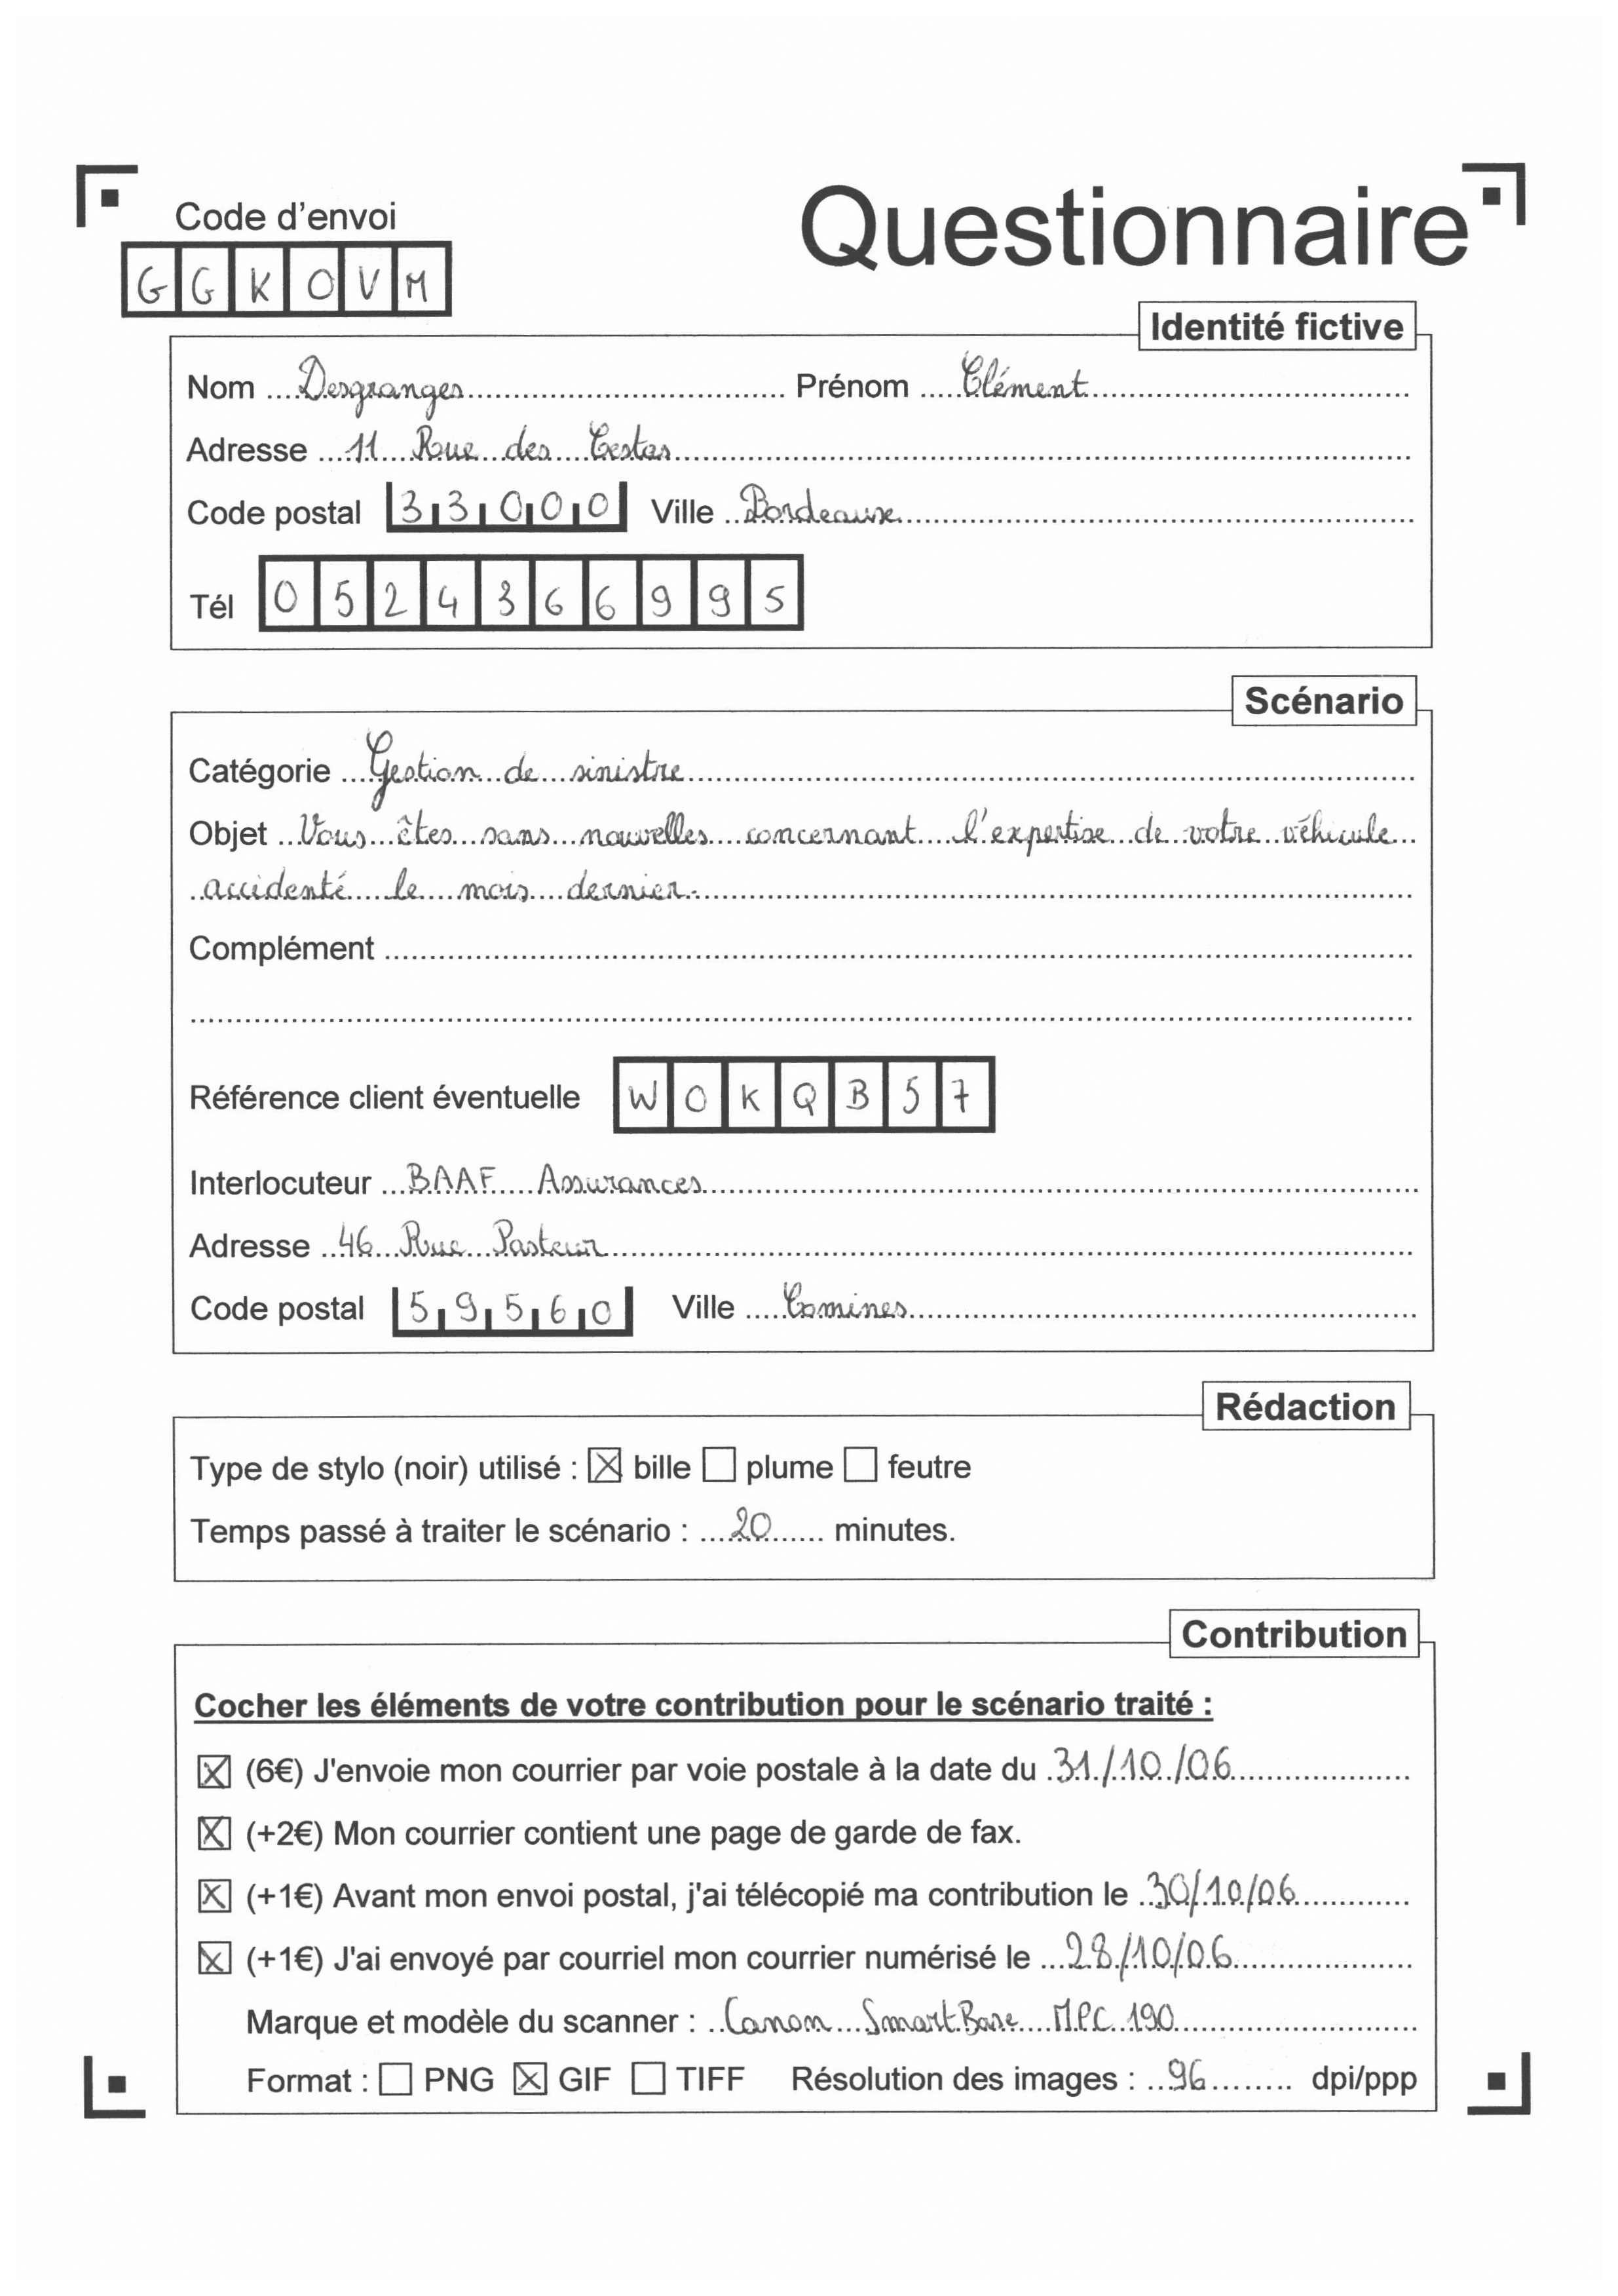 Code d'envoi
Questionnaire
G G K O V M
Identité fictive
Nom Desgranges Prénom Clément
Adresse 11 Rue des Cestas
Code postal 33000 Ville Bordeaux
Tél 0524366995
Scénario
Catégorie Gestion de sinistre
Objet Vous êtes sans nouvelles concernant l'expertise de votre véhicule
accidenté le mois dernier.
Complément
Référence client éventuelle W O K Q B 5 7
Interlocuteur BAAF Assurances
Adresse 46 Rue Pasteur
Code postal 59560 Ville Comines
Rédaction
Type de stylo (noir) utilisé : ☒ bille ☐ plume ☐ feutre
Temps passé à traiter le scénario : 20 minutes.
Contribution
Cocher les éléments de votre contribution pour le scénario traité :
☒ (6€) J'envoie mon courrier par voie postale à la date du 31/10/06
☒ (+2€) Mon courrier contient une page de garde de fax.
☒ (+1€) Avant mon envoi postal, j'ai télécopié ma contribution le 30/10/06
☒ (+1€) J'ai envoyé par courriel mon courrier numérisé le 28/10/06
Marque et modèle du scanner : Canon SmartBase MPC 190
Format : ☐ PNG ☒ GIF ☐ TIFF Résolution des images : 96 dpi/ppp